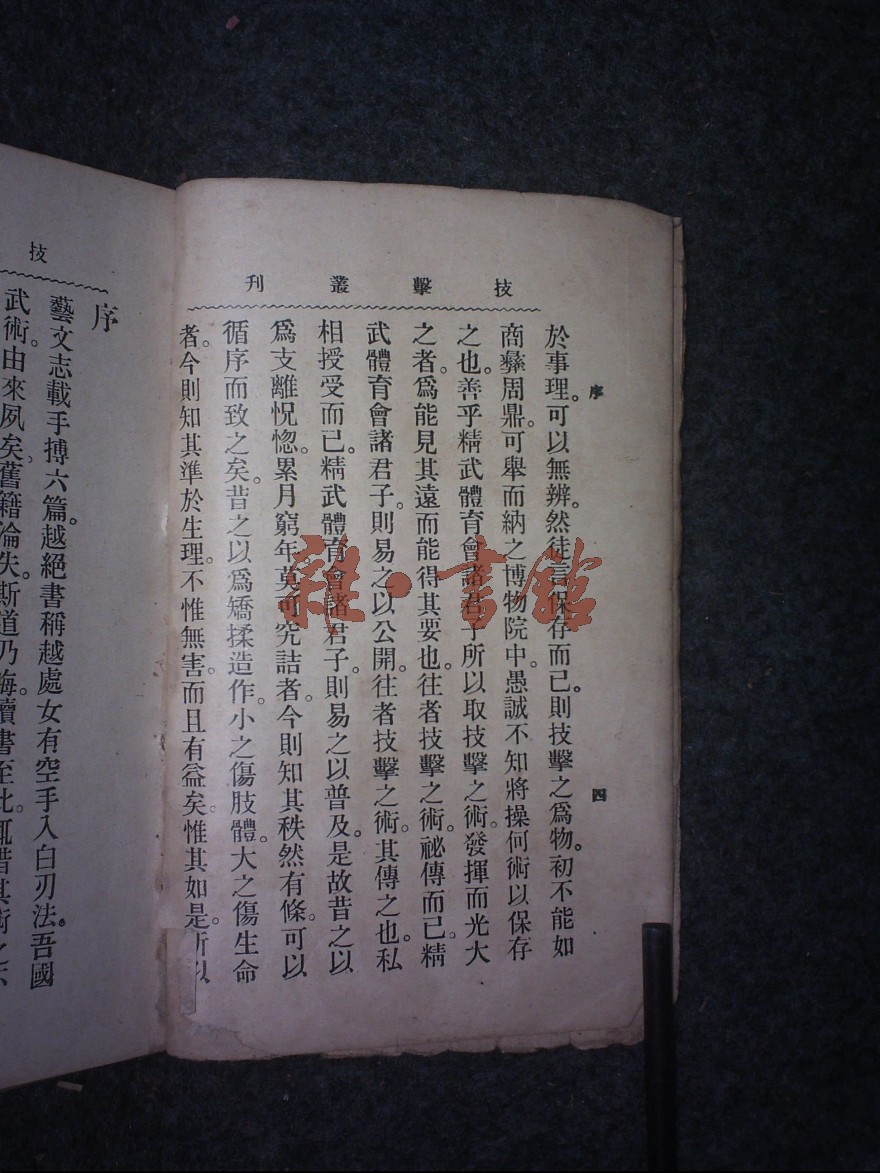 技擊叢刊
序
四
於事理。可以無辨。然徒言保存而已。則技擊之爲物。初不能如
商彝周鼎。可舉而納之博物院中。愚誠不知將操何術以保存
之也。善乎精武體育會諸君子所以取技擊之術。發揮而光大
之者。爲能見其遠而能得其要也。往者技擊之術。祕傳而已。精
武體育會諸君子。則易之以公開。往者技擊之術。其傳之也。私
相授受而已。精武體育會諸君子。則易之以普及。是故昔之以
爲支離怳惚。累月窮年莫可究詰者。今則知其秩然有條。可以
循序而致之矣。昔之以爲矯揉造作。小之傷肢體。大之傷生命
者。今則知其準於生理。不惟無害。而且有益矣。惟其如是。所以
技
序
藝文志載手搏六篇。越絕書稱越處女有空手入白刃法。吾國
武術。由來夙矣。舊籍淪失。斯道乃晦。讀書至此。輒惜其術之
雜·書館